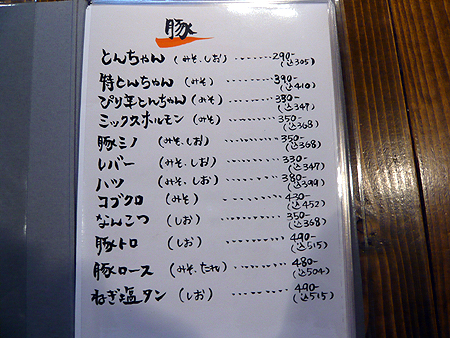 豚
とんちゃん (みそ、しお) ........290-
(込305)
特とんちゃん (みそ) ........390-
(込410)
ぴり辛とんちゃん (みそ) ......330-
(込347)
ミックスホルモン (みそ) ......350-
(込368)
豚ミノ (みそ、しお) ........350-
(込368)
レバー (みそ、しお) ........330-
(込347)
ハツ (みそ、しお) ........380-
(込399)
コブクロ (みそ) ........430-
(込452)
なんこつ (しお) ........350-
(込368)
豚トロ (しお) ........490-
(込515)
豚ロース (みそ、たれ) ........480-
(込504)
ねぎ塩タン (しお) ........490-
(込515)